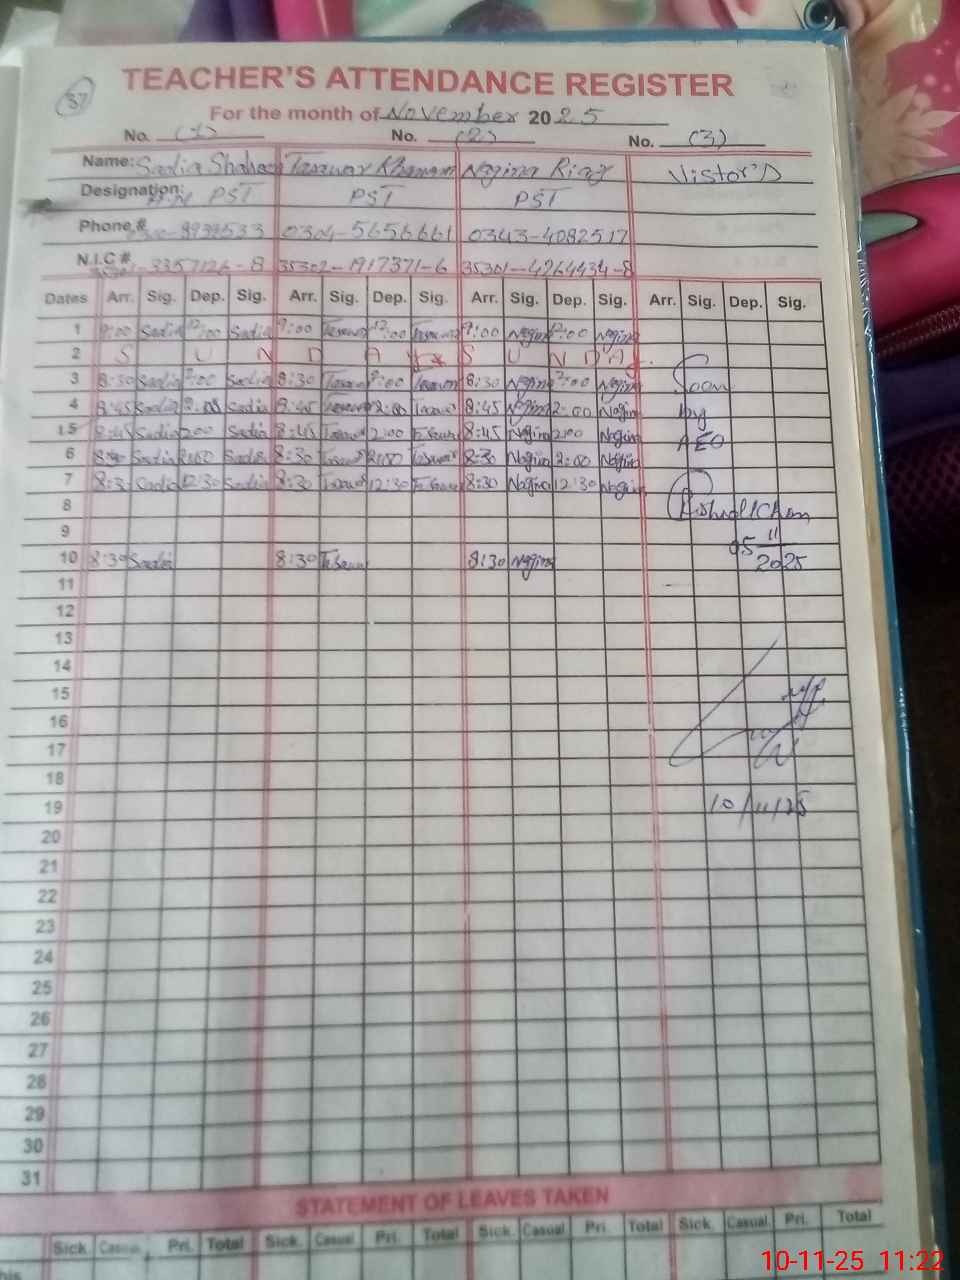 37
TEACHER'S ATTENDANCE REGISTER
For the month of November 2025
No. (1) No. (2) No. (3)
Name: Sadia Shaheen Tasawar Khanam Nagina Riaz Vistor's
Designation: PST PST PST
Phone # 8939533 0304-5656661 0343-4082517
N.I.C # 3357126-8 35302-1917371-6 35301-4264434-8
Dates Arr. Sig. Dep. Sig. Arr. Sig. Dep. Sig. Arr. Sig. Dep. Sig. Arr. Sig. Dep. Sig.
1 9:00 Sadia 12:00 Sadia 9:00 Tasawar 12:00 Tasawar 9:00 Nagina 12:00 Nagina
2 S U N D A Y S U N D A Y
3 8:30 Sadia 2:00 Sadia 8:30 Tasawar 2:00 Tasawar 8:30 Nagina 2:00 Nagina
4 8:45 Sadia 2:00 Sadia 8:45 Tasawar 2:00 Tasawar 8:45 Nagina 2:00 Nagina by
5 8:45 Sadia 2:00 Sadia 8:45 Tasawar 2:00 Tasawar 8:45 Nagina 2:00 Nagina AEO
6 8:30 Sadia 2:00 Sadia 8:30 Tasawar 2:00 Tasawar 8:30 Nagina 2:00 Nagina
7 8:30 Sadia 12:30 Sadia 8:30 Tasawar 12:30 Tasawar 8:30 Nagina 12:30 Nagina
8
9 05 11
10 8:30 Sadia 8:30 Tasawar 8:30 Nagina 2025
11
12
13
14
15
16
17
18
19 10/11/25
20
21
22
23
24
25
26
27
28
29
30
31
STATEMENT OF LEAVES TAKEN
Sick. Casual. Pri. Total Sick. Casual Pri. Total Sick. Casual Pri. Total Sick. Casual. Pri. Total
10-11-25 11:22